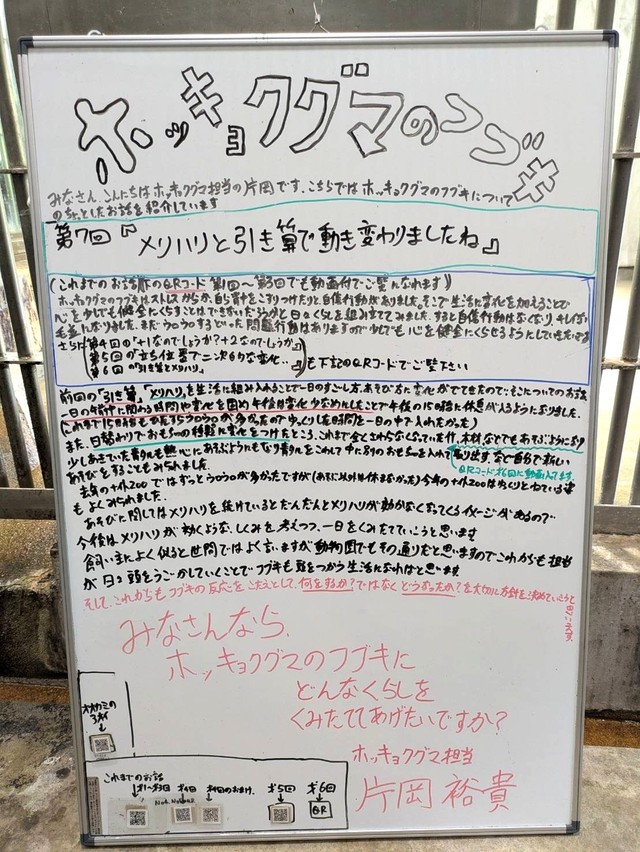 ホッキョクグマのフブキ
みなさん、こんにちはホッキョクグマ担当の片岡です。こちらではホッキョクグマのフブキについて
のちょっとしたお話を紹介しています
第7回『メリハリと引き算で動き変わりましたね』
(これまでのお話 QRコード 第1回〜第3回でも動画付でご覧になれます)
ホッキョクグマのフブキはストレスからか、自ら背中をこすりつけたりと、自傷行動がありました。そこで生活に変化を加えることで
心を少しでも健全にくらすことはできないだろうかと日々くらしを組み立ててみました。すると自傷行動はなくなり、キレイな
毛並になりました。まだウロウロするといった問題行動はありますので少しでも心を健全にくらせるようにしていきたいです
さらに第4回の「+1なのでしょうか?+2なのでしょうか」
第5回の「立ち位置で二次的な変化...」
第6回の「引き算とメリハリ」
も下記のQRコードでご覧下さい
前回の「引き算」、「メリハリ」を生活に組み入れることで一日のすごし方、あそび方に変化がでてきたので、そこについてのお話
一日の午前中に関わる時間や変化を固め午後は変化少なめにしたことで午後の15時台に休息が入るようになりました。
(これまで15時台もかたよりウロウロが多かったのでゆっくりした時間を一日の中で入れたかった)
また、日替わりでおもちゃの種類に変化をつけたところ、これまで全くさわらなくなっていた竹、木材などでもあそぶようになり
少しあきていた青タルも熱心にあそぶようにもなり青タルをこわして中に別のおもちゃを入れて取り出すなど自分で新しい
あそびをすることもみられました。
QRコード第6回に動画入ってます
去年のナイトZOOではずっとウロウロが多かったですが(あそぶ以外は休まなかった)今年のナイトZOOはゆっくりとねている姿
もよくみられました。
あそびに関してはメリハリを続けているとだんだんとメリハリが効かなくなってくるイメージがあるので
今後はメリハリが効くような、しくみを考えつつ、一日をくみたてていこうと思います
飼い主によく似ると世間ではよく言いますが動物園でもその通りだと思いますのでこれからも担当
が日々頭をうごかしていくことでフブキも頭をつかう生活になればと思います
そして、これからもフブキの反応をこたえとして、何をするか?ではなくどうなったか?を大切に方針を決めていこうと
思います。
みなさんなら、
ホッキョクグマのフブキに
どんなくらしを
くみたててあげたいですか?
ホッキョクグマ担当
片岡 裕貴
オオカミの
3才
これまでのお話
第1〜第3回
第4回
第4回のおまけ
第5回
第6回
QR